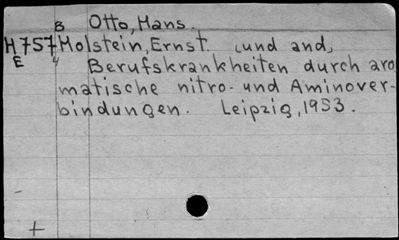 B Otto, Hans.
H757 Molstein, Ernst (und and)
E 4 Berufskrankheiten durch aro
matische nitro- und Aminover-
bindungen. Leipzig, 1953.
+